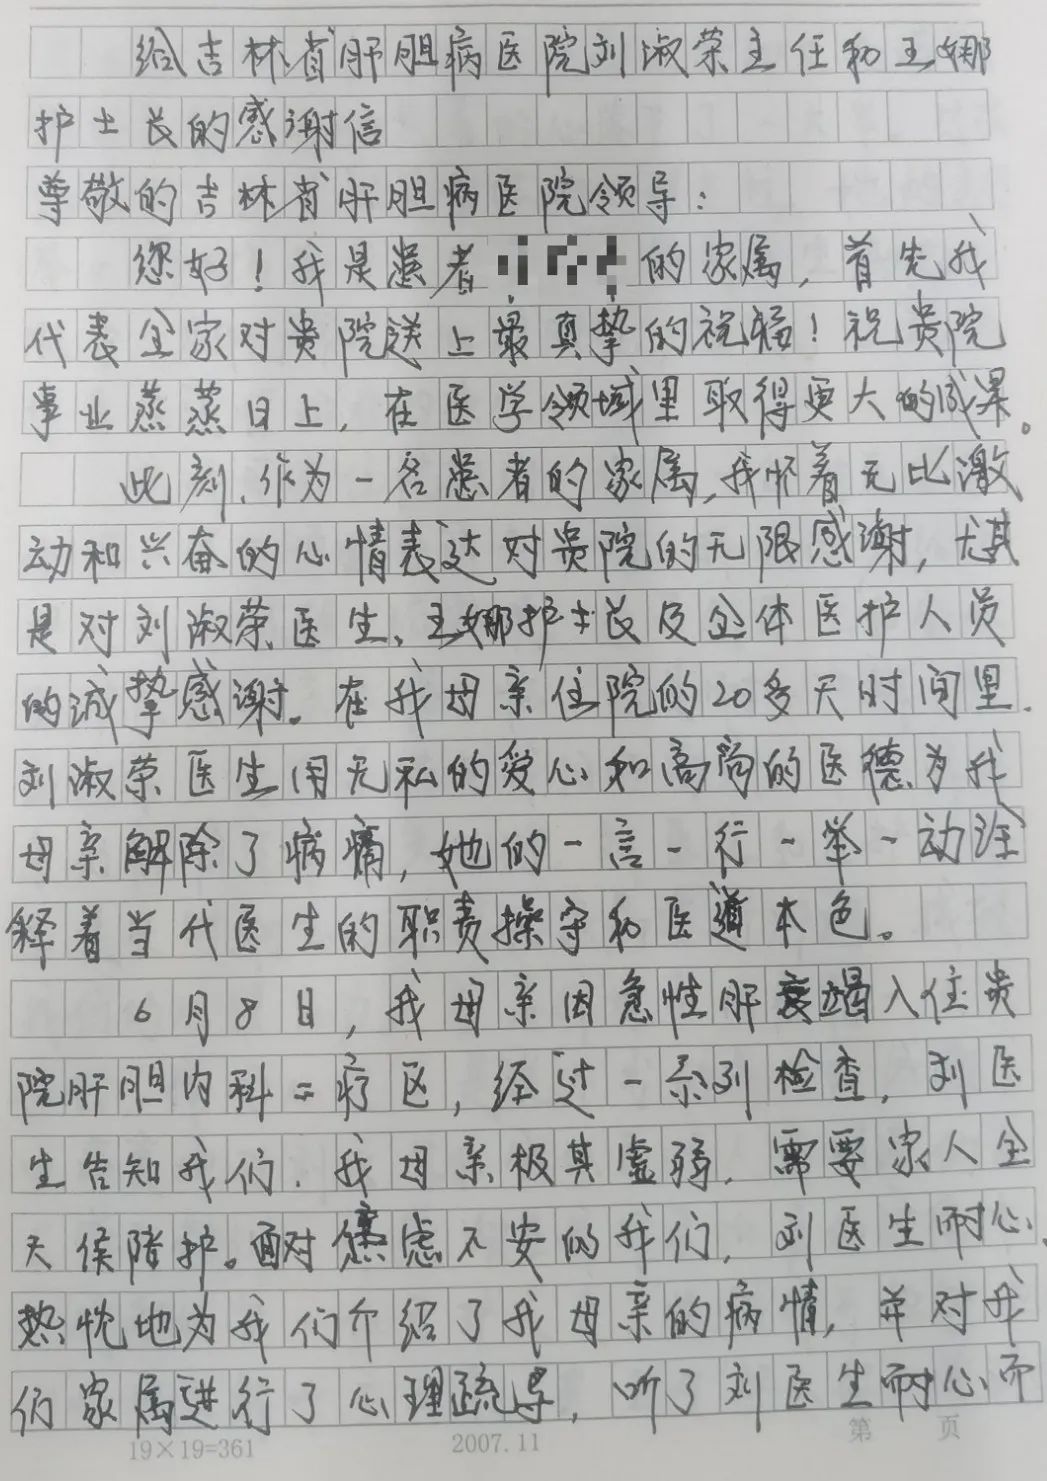 给吉林省肝胆病医院刘淑荣主任和王娜
护士长的感谢信
尊敬的吉林省肝胆病医院领导：
您好！我是患者的家属，首先我
代表全家对贵院送上最真挚的祝福！祝贵院
事业蒸蒸日上，在医学领域里取得更大的成果。
此刻，作为一名患者的家属，我怀着无比激
动和兴奋的心情表达对贵院的无限感谢，尤其
是对刘淑荣医生、王娜护士长及全体医护人员
的诚挚感谢。在我母亲住院的20多天时间里，
刘淑荣医生用无私的爱心和高尚的医德为我
母亲解除了病情，她的一言一行一举一动诠
释着当代医生的职责操守和医道本色。
6月8日，我母亲因急性肝衰竭入住贵
院肝胆内科二疗区，经过一系列检查，刘医
生告知我们，我母亲极其虚弱，需要家人全
天候陪护。面对焦虑不安的我们，刘医生耐心、
热忱地为我们介绍了我母亲的病情，并对我
们家属进行了心理疏导，听了刘医生耐心而
19×19=361 2007.11 第 页